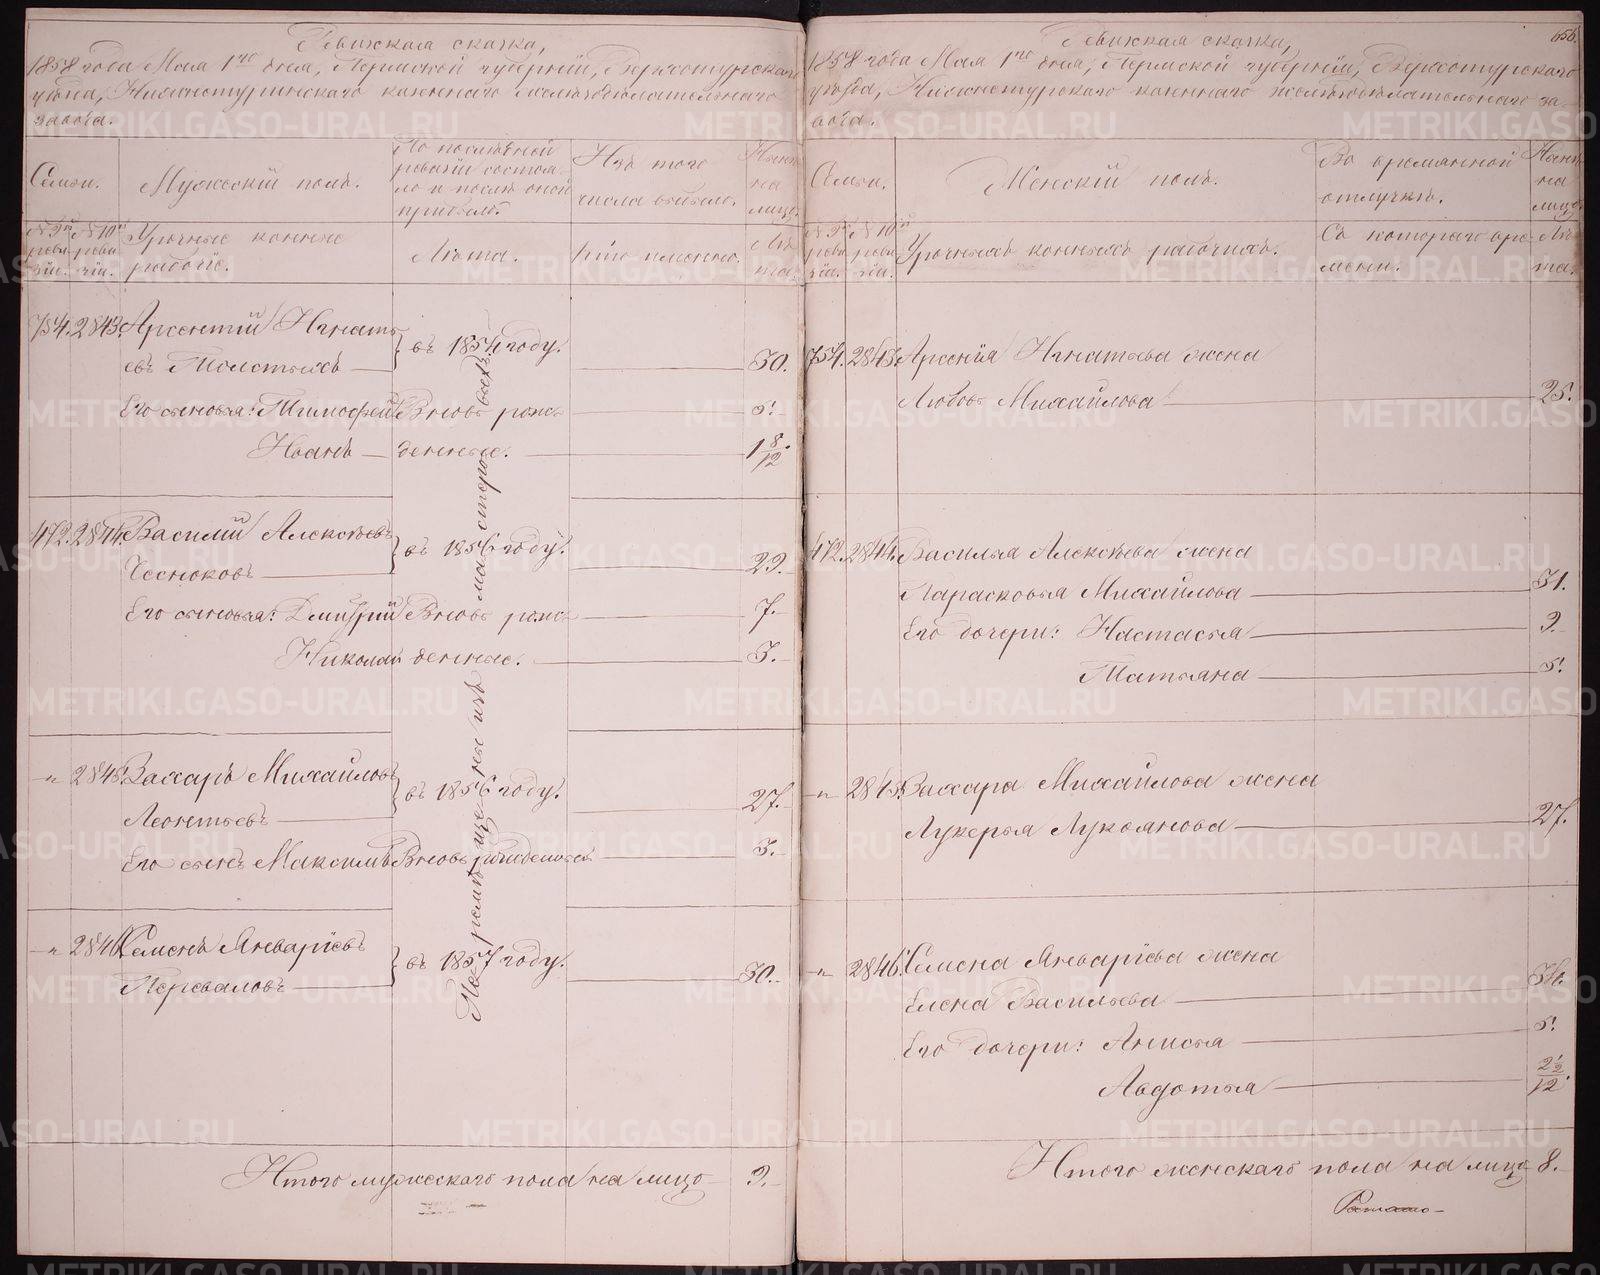 Ревижская сказка,
1858 года Мая 1го дня, Пермской губернiи, Верхотурскаго
уѣзда, Нижнетуринскаго казеннаго желѣзодѣлательнаго
завода.
Семьи.
Мужескiй полъ.
По послѣдней
ревизiи состоя-
ло и послѣ оной
прибыло.
Изъ того
числа выбыло.
Нынѣ
на
лицо.
№ 9й
реви-
зiи.
№ 10й
реви-
зiи.
Урочные конные
рабочiе.
Лѣта.
Кто именно.
Лѣ-
та.
754. 2843. Арсентiй Игнать-
евъ Толстыхъ — въ 1854 году. 30.
Его сыновья: Тимофей Вновь рож- 5.
Иванъ — денные. 1 8/12.
472. 2844. Василiй Алексѣевъ
Чесноковъ — въ 1856 году. 29.
Его сыновья: Дмитрiй Вновь рож- 7.
Николай денные. 3.
„ 2845. Захаръ Михайловъ
Леонтьевъ — въ 1856 году. 27.
Его сынъ Максимъ Вновь рожденный 3.
„ 2846. Семенъ Январiевъ
Переваловъ — въ 1857 году. 30.
изъ мастеро
Итого мужескаго пола на лицо 9.
656.
Ревижская сказка,
1858 года Мая 1го дня, Пермской губернiи, Верхотурскаго
уѣзда, Нижнетурскаго казеннаго желѣзодѣлательнаго за-
вода.
Семьи.
Женскiй полъ.
Во временной
отлучкѣ.
Нынѣ
на
лицо.
№ 9й
реви-
зiи.
№ 10й
реви-
зiи.
Урочныхъ конныхъ рабочихъ.
Съ котораго вре-
мени.
Лѣ-
та.
754. 2843. Арсенiя Игнатьева жена
Любовь Михайлова 25.
472. 2844. Василья Алексѣева жена
Парасковья Михайлова 31.
Его дочери: Настасья 9.
Татьяна 5.
„ 2845. Захара Михайлова жена
Лукерья Лукоянова 27.
„ 2846. Семена Январiева жена
Елена Васильева 36.
Его дочери: Анисья 5.
Авдотья 2 1/2/12.
Итого женскаго пола на лицо 8.
METRIKI.GASO-URAL.RU